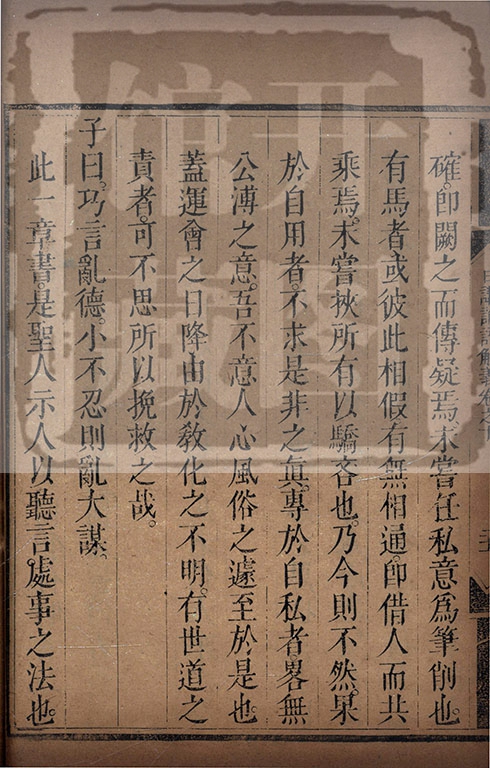 確。卽闕之而傳疑焉。未嘗任私意爲筆削也。
有馬者或彼此相假有無相通。卽借人而共
乘焉。未嘗挾所有以驕吝也。乃今則不然。果
於自用者。不求是非之眞。專於自私者畧無
公溥之意。吾不意人心風俗之遽至於是也。
蓋運會之日降由於敎化之不明。有世道之
責者。可不思所以挽救之哉。
子曰。巧言亂德。小不忍則亂大謀。
此一章書。是聖人示人以聽言處事之法也。